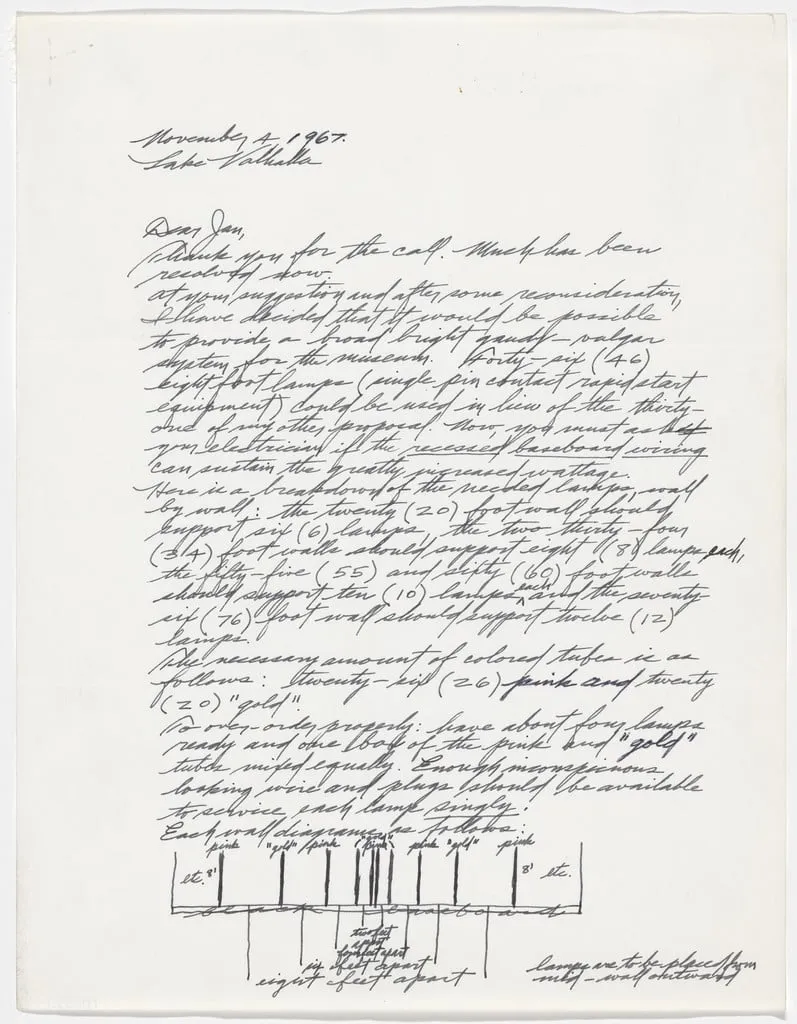 November 4, 1967.
Lake Valhalla
Dear Jan,
Thank you for the call. Much has been
resolved now.
At your suggestion and after some reconsideration,
I have decided that it would be possible
to provide a broad bright gaudy-vulgar
system for the museum. Forty-six (46)
eight foot lamps (single pin contact rapid start
equipment) could be used in lieu of the thirty-
one of my other proposal. Now, you must ask
your electrician if the recessed baseboard wiring
can sustain the greatly increased wattage.
Here is a breakdown of the needed lamps, wall
by wall: the twenty (20) foot wall should
support six (6) lamps, the two thirty-four
(34) foot walls should support eight (8) lamps each,
the fifty-five (55) and sixty (60) foot walls
should support ten (10) lamps each and the seventy-
six (76) foot wall should support twelve (12)
lamps.
The necessary amount of colored tubes is as
follows: twenty-six (26) pink and twenty
(20) "gold".
To over-order properly: have about four lamps
ready and one box of the pink and "gold"
tubes mixed equally. Enough inconspicuous
looking wire and plugs should be available
to service each lamp singly.
Each wall diagrams as follows:
pink "gold" pink "gold" pink pink "gold" pink
etc. 8' 8' etc.
black baseboard
two feet
apart
four feet apart
six feet apart
eight feet apart
lamps are to be placed from
mid-wall outward